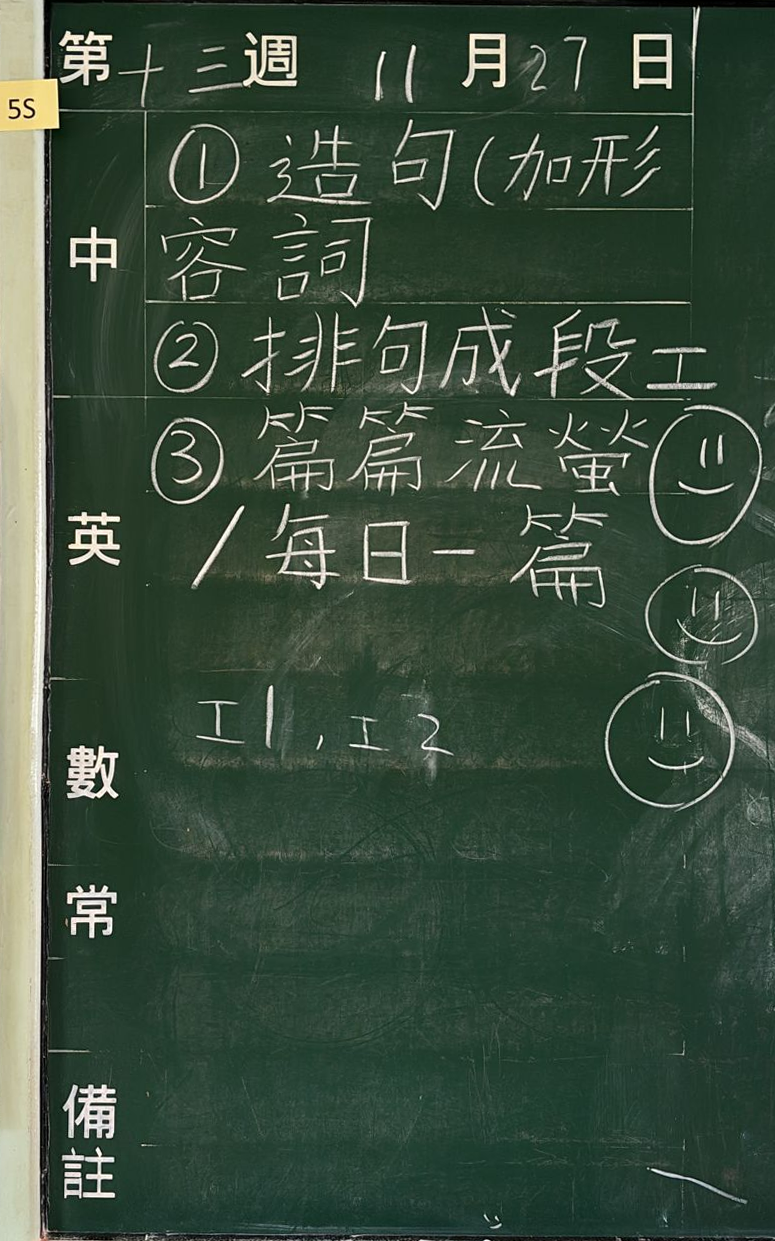 第十三週 11月27日
5S
中
①造句(加形
容詞
②排句成段工
英
③篇篇流螢
/每日一篇
數
工1,工2
常
備註